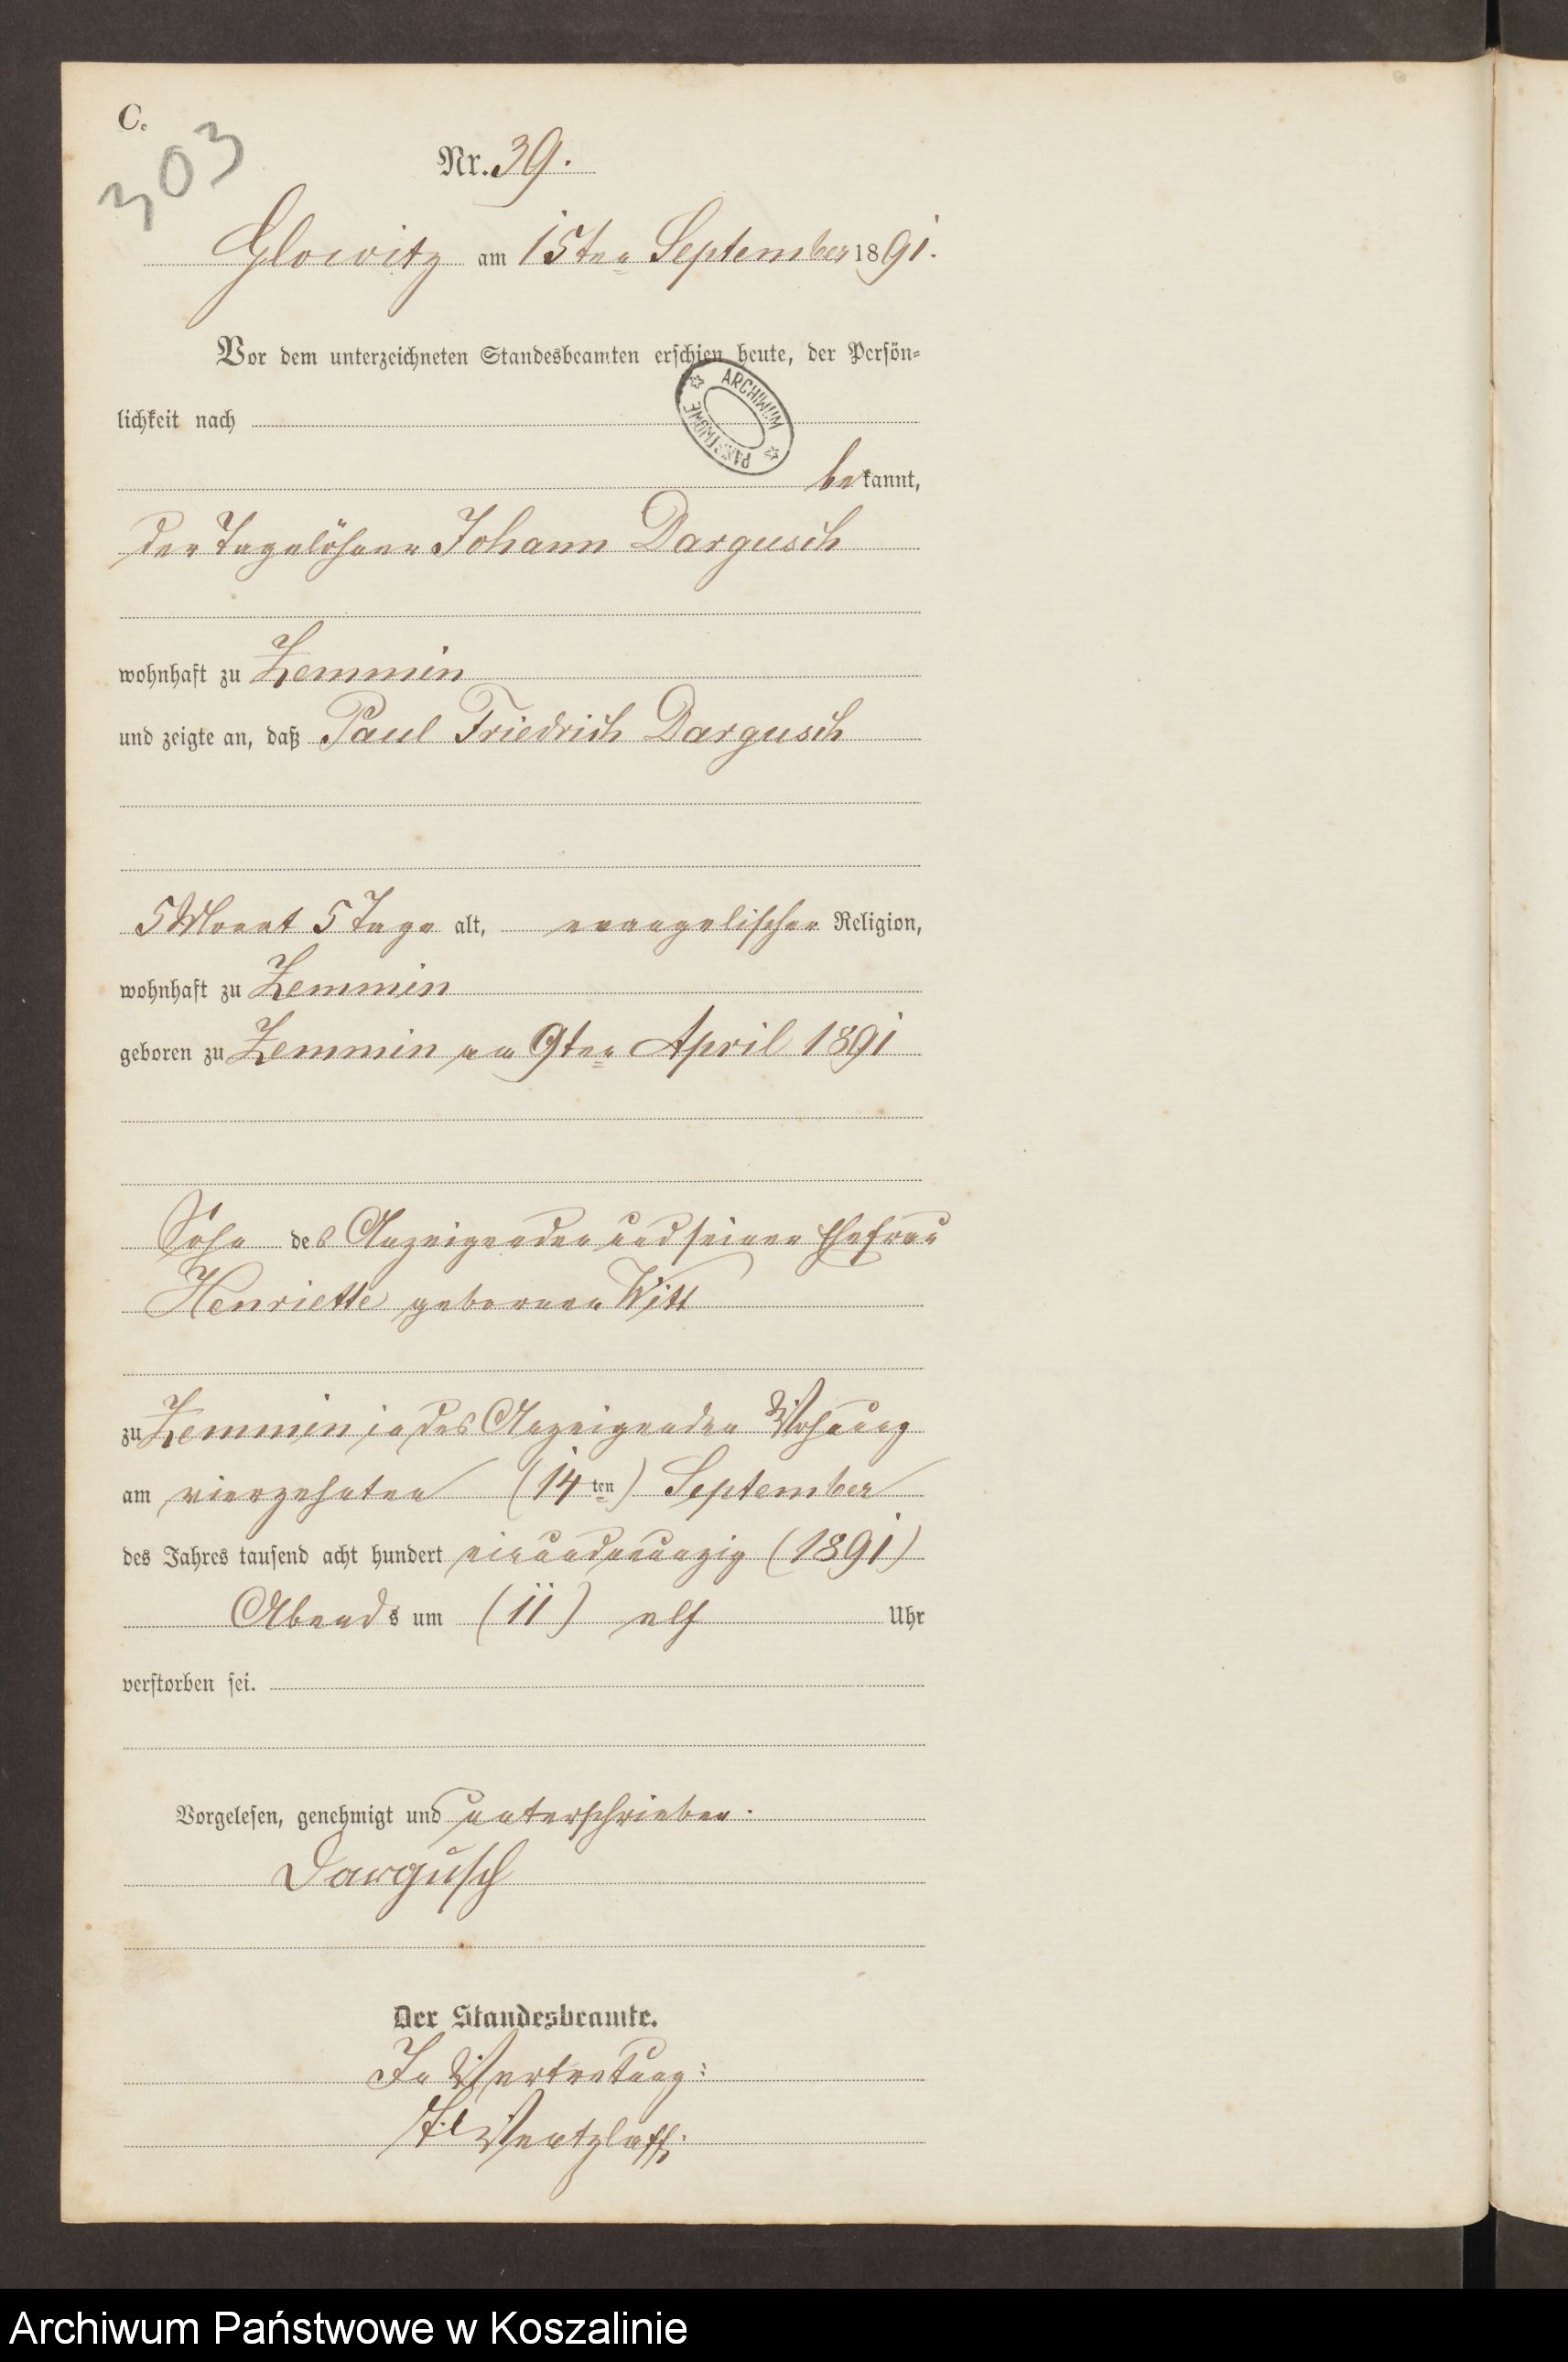 C.
303
Nr. 39.
Glowitz am 15ten September 1891.
Vor dem unterzeichneten Standesbeamten erschien heute, der Persön-
lichkeit nach
ARCHIWUM PAŃSTWOWE
bekannt,
der Tagelöhner Johann Dargusch
wohnhaft zu Zemmin
und zeigte an, daß Paul Friedrich Dargusch
5 Monat 5 Tage alt, evangelischer Religion,
wohnhaft zu Zemmin
geboren zu Zemmin am 9ten April 1891
Sohn des Anzeigenden und seiner Ehefrau
Henriette geborenen Witt
zu Zemmin in des Anzeigenden Wohnung
am vierzehnten (14ten) September
des Jahres tausend acht hundert einundneunzig (1891)
Abends um (11) elf Uhr
verstorben sei.
Vorgelesen, genehmigt und unterschrieben.
Dargusch
Der Standesbeamte.
In Vertretung:
Wentzlaff.
Archiwum Państwowe w Koszalinie